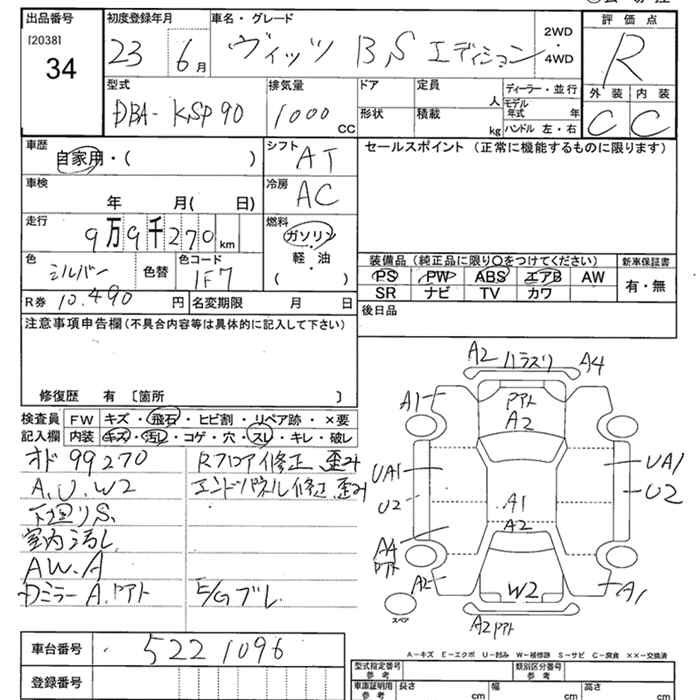 出品番号 初度登録年月 車名・グレード 評価点
[2038]
34
23 6月 ヴィッツ B,S エディション 2WD・4WD R
型式 排気量 ドア 定員 人 ディーラー・並行 外装 内装
DBA- KSP90 1000 CC 形状 積載 kg モデル年式 年 C C
ハンドル 左・右
車歴 シフト セールスポイント (正常に機能するものに限ります)
自家用・( ) AT
車検 冷房
年 月( 日) AC
走行 燃料
9万9千270km ガソリン・軽油・( )
色 カラーコード
装備品 (純正品に限り○をつけてください) 新車保証書
シルバー 色替 1F7 PS PW ABS エアB AW 有・無
SR ナビ TV カワ
R券 10,490 円 名変期限 月 日 後日品
注意事項申告欄 (不具合内容等は具体的に記入して下さい)
修復歴 有 〔箇所 〕
検査員 FW キズ・飛石・ヒビ割・リペア跡・×要
記入欄 内装 キズ・汚レ・コゲ・穴・スレ・キレ・破レ
オド 99270 Rフロア修正 歪み
A.U.W2 エンドパネル修正 歪み
下廻りS
室内汚レ
AW.A
Dミラー A.アト E/Gブレ
A2 ハラスリ A4
A1 アト A2
UA1 UA1
U2 A1 U2
A2
A4 アト
A2 W2 A1
スペア
A2アト
車台番号 5221096
登録番号
A-キズ E-エクボ U-凹み W-補修跡 S-サビ C-腐食 ××-交換済
型式指定番号 参考 類別区分番号 参考
車庫証明用 参考 長さ cm 幅 cm 高さ cm